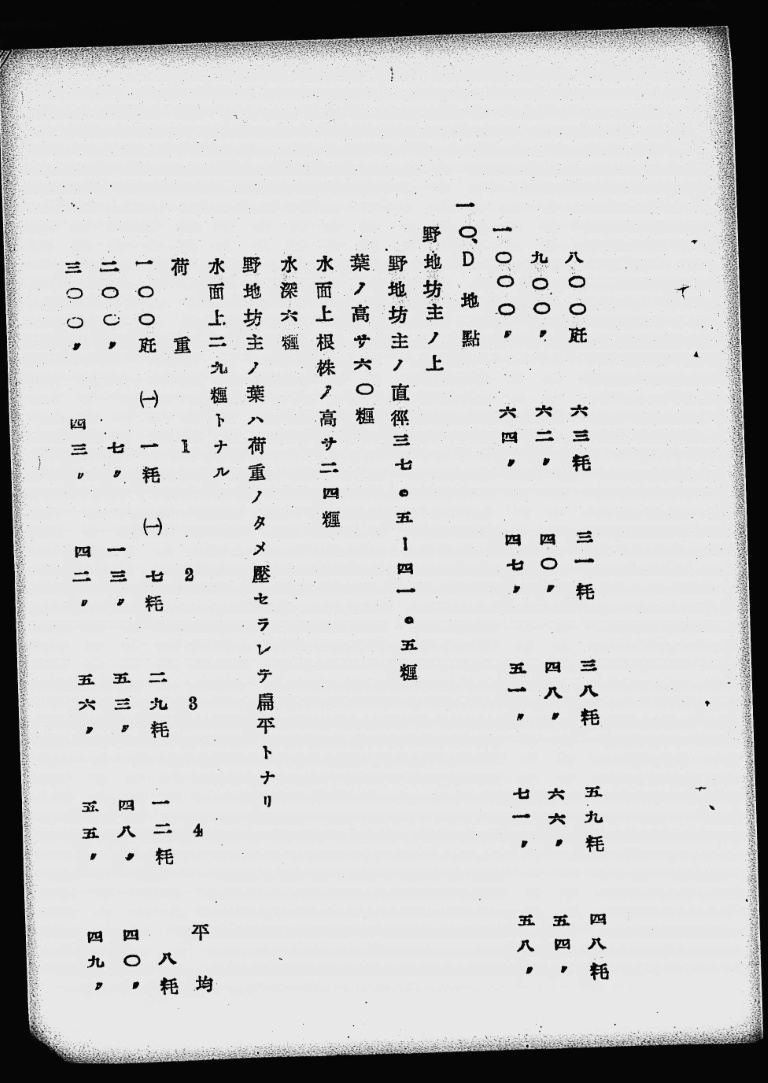 八〇〇瓩 六三粍 三一粍 三八粍 五九粍 四八粍
九〇〇〃 六二〃 四〇〃 四八〃 六六〃 五四〃
一〇〇〇〃 六四〃 四七〃 五一〃 七一〃 五八〃
一〇、D地點
野地坊主ノ上
野地坊主ノ直徑三七。五ー四一。五糎
葉ノ高サ六〇糎
水面上根株ノ高サ二四糎
水深六糎
野地坊主ノ葉ハ荷重ノタメ壓セラレテ扁平トナリ
水面上二九糎トナル
荷重 1 2 3 4 平均
一〇〇瓩 ㈠一粍 ㈠七粍 二九粍 一二粍 八粍
二〇〇〃 七〃 一三〃 五三〃 四八〃 四〇〃
三〇〇〃 四三〃 四二〃 五六〃 五五〃 四九〃